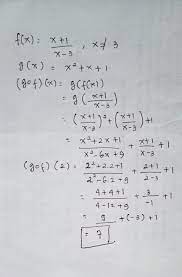 f(x) = x+1/x-3 , x ≠ 3
g(x) = x²+x+1
(gof)(x) = g(f(x))
= g(x+1/x-3)
= (x+1/x-3)² + (x+1/x-3) + 1
= x²+2x+1/x²-6x+9 + x+1/x-3 + 1
(gof)(2) = 2²+2.2+1/2²-6.2+9 + 2+1/2-3 + 1
= 4+4+1/4-12+9 + 3/-1 + 1
= 9 + (-3) + 1
= 7